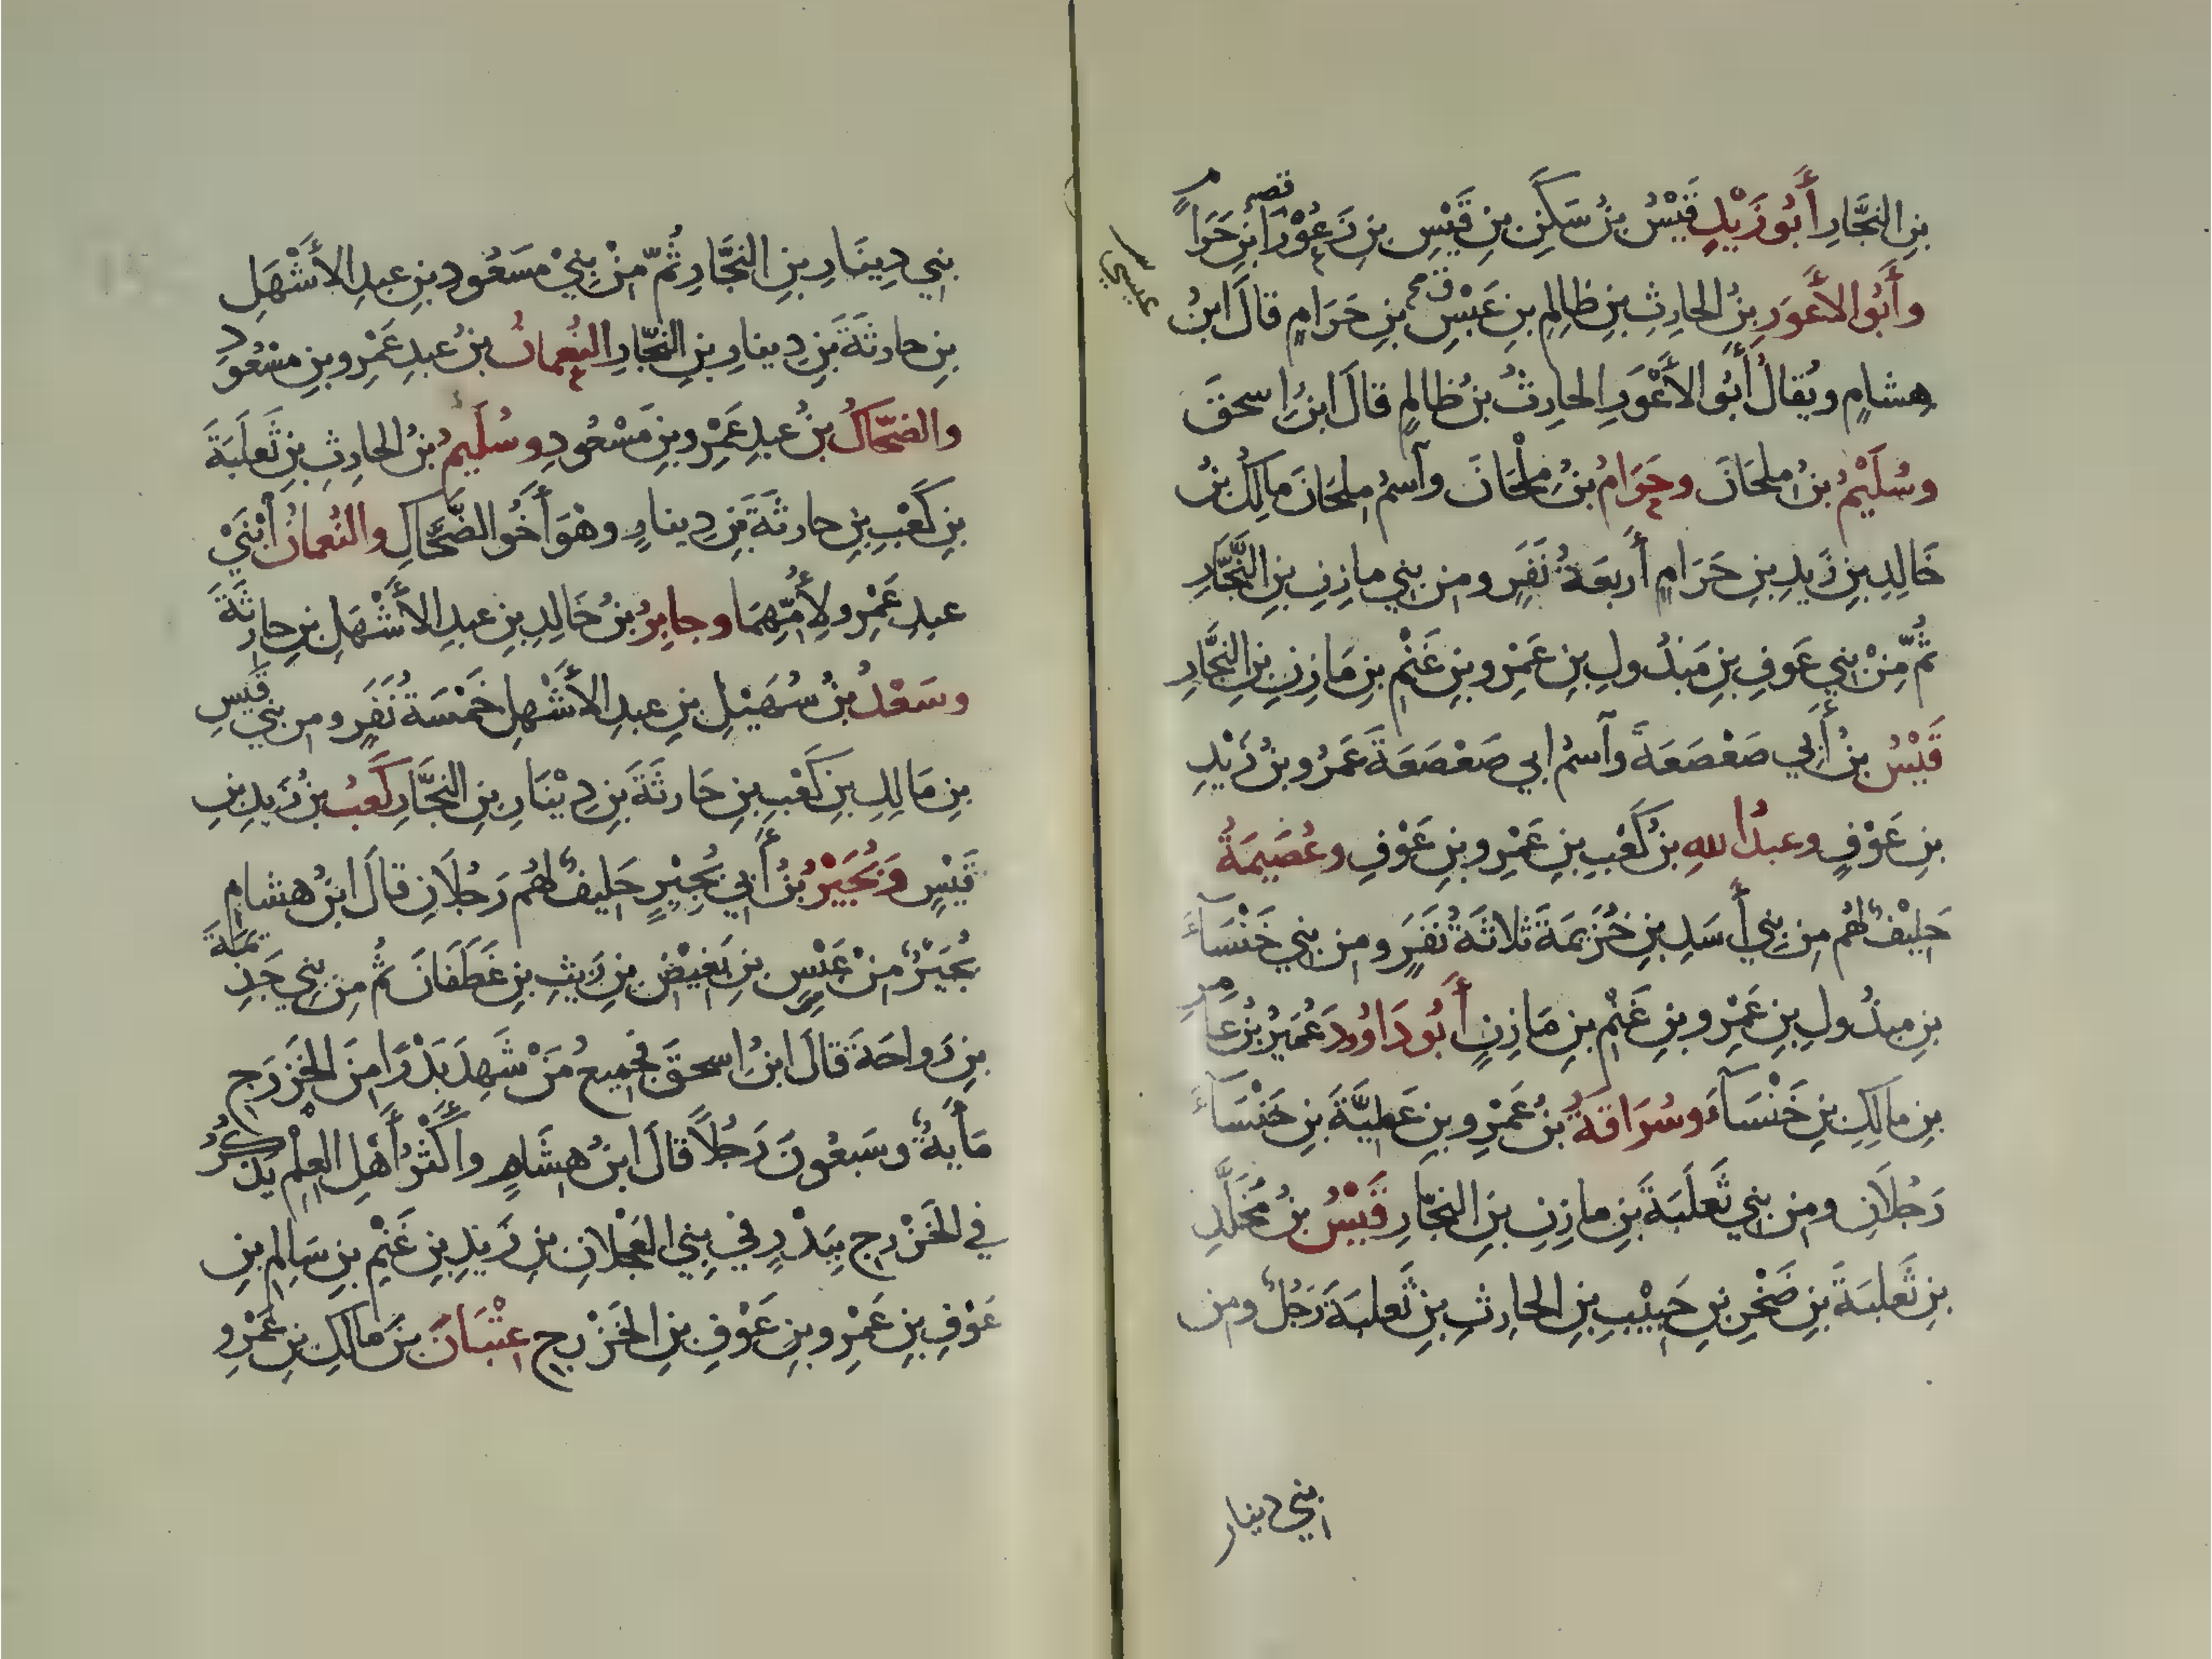 بنِ النَّجَّارِ أَبُو زَيْدٍ قَيْسُ بنُ سَكَنِ بنِ قَيْسِ بنِ زَعُوْرَا بنِ حَرَامٍ
وأَبُو الأَعْوَرِ بنُ الحارِثِ بنِ ظالِمِ بنِ عَبْسِ بنِ حَرَامٍ قالَ ابنُ
عبسي
هِشامٍ ويُقالُ أَبُو الأَعْوَرِ الحارِثُ بنُ ظالِمٍ قالَ ابنُ اِسحقَ
وسُلَيْمُ بنُ مِلحَانَ وحَرَامُ بنُ مِلْحَانَ وآسمُ مِلحَانَ مَالِكُ بنُ
خَالِدِ بنِ زَيدِ بنِ حَرَامٍ أَربعَةُ نَفَرٍ ومن بني مازِنِ بنِ النَّجَّارِ
ثُمَّ مِنْ بني عَوفِ بنِ مَبذُولِ بنِ عَمْرِو بنِ غَنْمِ بنِ مَازِنِ بنِ النَّجَّارِ
قَيْسُ بنُ أَبِي صَعْصَعَةَ وآسمُ ابي صَعْصَعَةَ عَمْرُو بنُ زَيْدِ
بنِ عَوْفٍ وعبدُ اللهِ بنُ كَعْبِ بنِ عَمْرِو بنِ عَوْفٍ وعُصَيمَةُ
حَلِيْفٌ لهُم من بني أَسَدِ بنِ خُزَيمَةَ ثلاثَةُ نَفَرٍ ومن بني خَنْسَآءَ
بنِ مبذُولِ بنِ عَمْرِو بنِ غَنْمِ بنِ مَازِنٍ أَبُو دَاوُودَ عُمَيْرُ بنُ عَامِرِ
بنِ مالِكِ بنِ خَنْسَآءَ وسُرَاقَةُ بنُ عَمْرِو بنِ عَطِيَّةَ بنِ خَنْسَآءَ
رَجُلَانِ ومن بني ثَعلَبَةَ بنِ مازِنِ بنِ النجّارِ قَيْسُ بنُ مُخَلَّدِ
بنِ ثَعلبَةَ بنِ صَخْرِ بنِ حَبِيْبِ بنِ الحارِثِ بنِ ثَعلبَةَ رَجُلٌ ومن
بني دينار
بني دِينَارِ بنِ النَّجَّارِ ثُمَّ مِنْ بَنِيْ مَسعُودِ بنِ عبدِ الأَشْهَلِ
بنِ حارثَةَ بنِ دِينارِ بنِ النجّارِ النُعمانُ بنُ عبدِ عَمْرِو بنِ مسْعُودٍ
والضحّاكُ بنُ عبدِ عَمْرِو بنِ مَسْعُودٍ وسُلَيمُ بنُ الحارِثِ بنِ ثَعلَبَةَ
بنِ كَعْبِ بنِ حارثَةَ بنِ دِينارٍ وهْوَ أَخُو الضَّحَّاكِ والنُعمانُ اَبْنَيْ
عبدِ عَمْرٍو لِأُمِّهِمَا وجابِرُ بنُ خَالِدِ بنِ عبدِ الأَشْهَلِ بنِ حارِثَةَ
وسَعْدُ بنُ سُهَيْلِ بنِ عبدِ الأَشْهلِ خَمْسَةُ نَفَرٍ ومن بني قَيسِ
بنِ مَالِكِ بنِ كَعْبِ بنِ حَارثَةَ بنِ دِيْنَارِ بنِ النجَّارِ كَعْبُ بنُ زَيدِ بنِ
قَيْسٍ وَبُجَيْرُ بنُ أَبي بُجَيْرٍ حَلِيفٌ لهُم رَجُلَانِ قالَ ابنُ هشامٍ
بُجَيْرٌ مِنْ عَبْسِ بنِ بَغِيْضِ بنِ رَيثِ بنِ غَطَفَانَ ثُم مِن بَنِي جَذِيمَةَ
بنِ رَواحَةَ قَالَ ابنُ اِسحقَ فجميعُ مَنْ شَهِدَ بَدْرًا مِنَ الخَزرَجِ
مَأيةٌ وسَبعُونَ رَجُلاً قالَ ابنُ هِشَامٍ وأَكْثرُ أَهْلِ العِلْمِ يَذكُرُ
في الخَزْرجِ بِبَدْرٍ في بني العَجْلانِ بنِ زَيدِ بنِ غَنْمِ بنِ سَالِمِ بنِ
عَوْفِ بنِ عَمْرِو بنِ عَوْفِ بنِ الخَزْرجِ عِتْبَانَ بنَ مالِكِ بنِ عَمْرِو